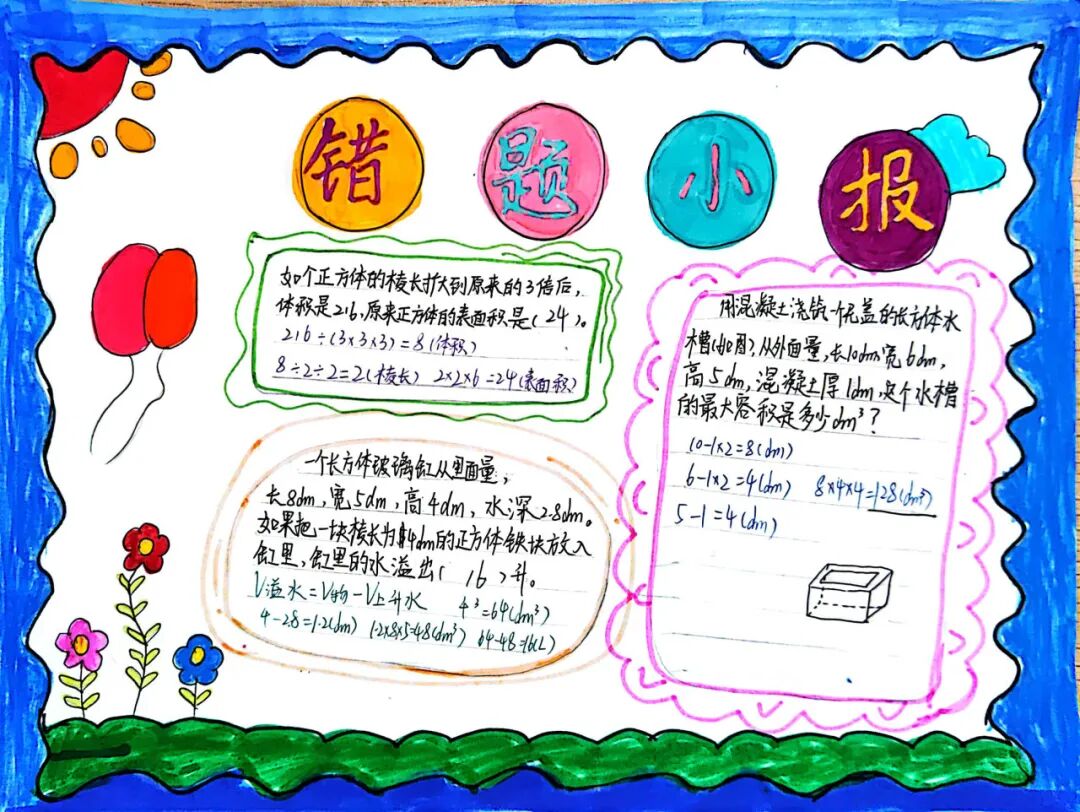 错题小报
如个正方体的棱长扩大到原来的3倍后,
体积是216,原来正方体的表面积是(24)。
216÷(3×3×3)=8(体积)
8÷2÷2=2(棱长) 2×2×6=24(表面积)
一个长方体玻璃缸从里面量,
长8dm,宽5dm,高4dm,水深2.8dm。
如果把一块棱长为4dm的正方体铁块放入
缸里,缸里的水溢出( 16 )升。
V溢水=V物-V上升水 4³=64(dm³)
4-2.8=1.2(dm) 1.2×8×5=48(dm³) 64-48=16(L)
用混凝土浇筑一个无盖的长方体水
槽(如图),从外面量,长10dm宽6dm,
高5dm,混凝土厚1dm,这个水槽
的最大容积是多少dm³?
10-1×2=8(dm)
6-1×2=4(dm) 8×4×4=128(dm³)
5-1=4(dm)